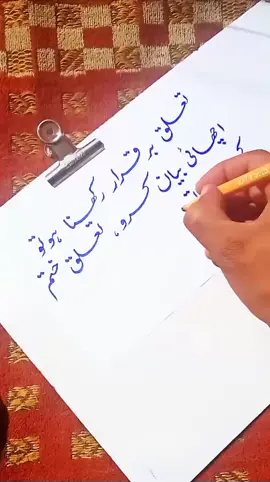 تعلق برقرار رکھنا ہو تو
اچھائی بیان کرو، تعلق ختم